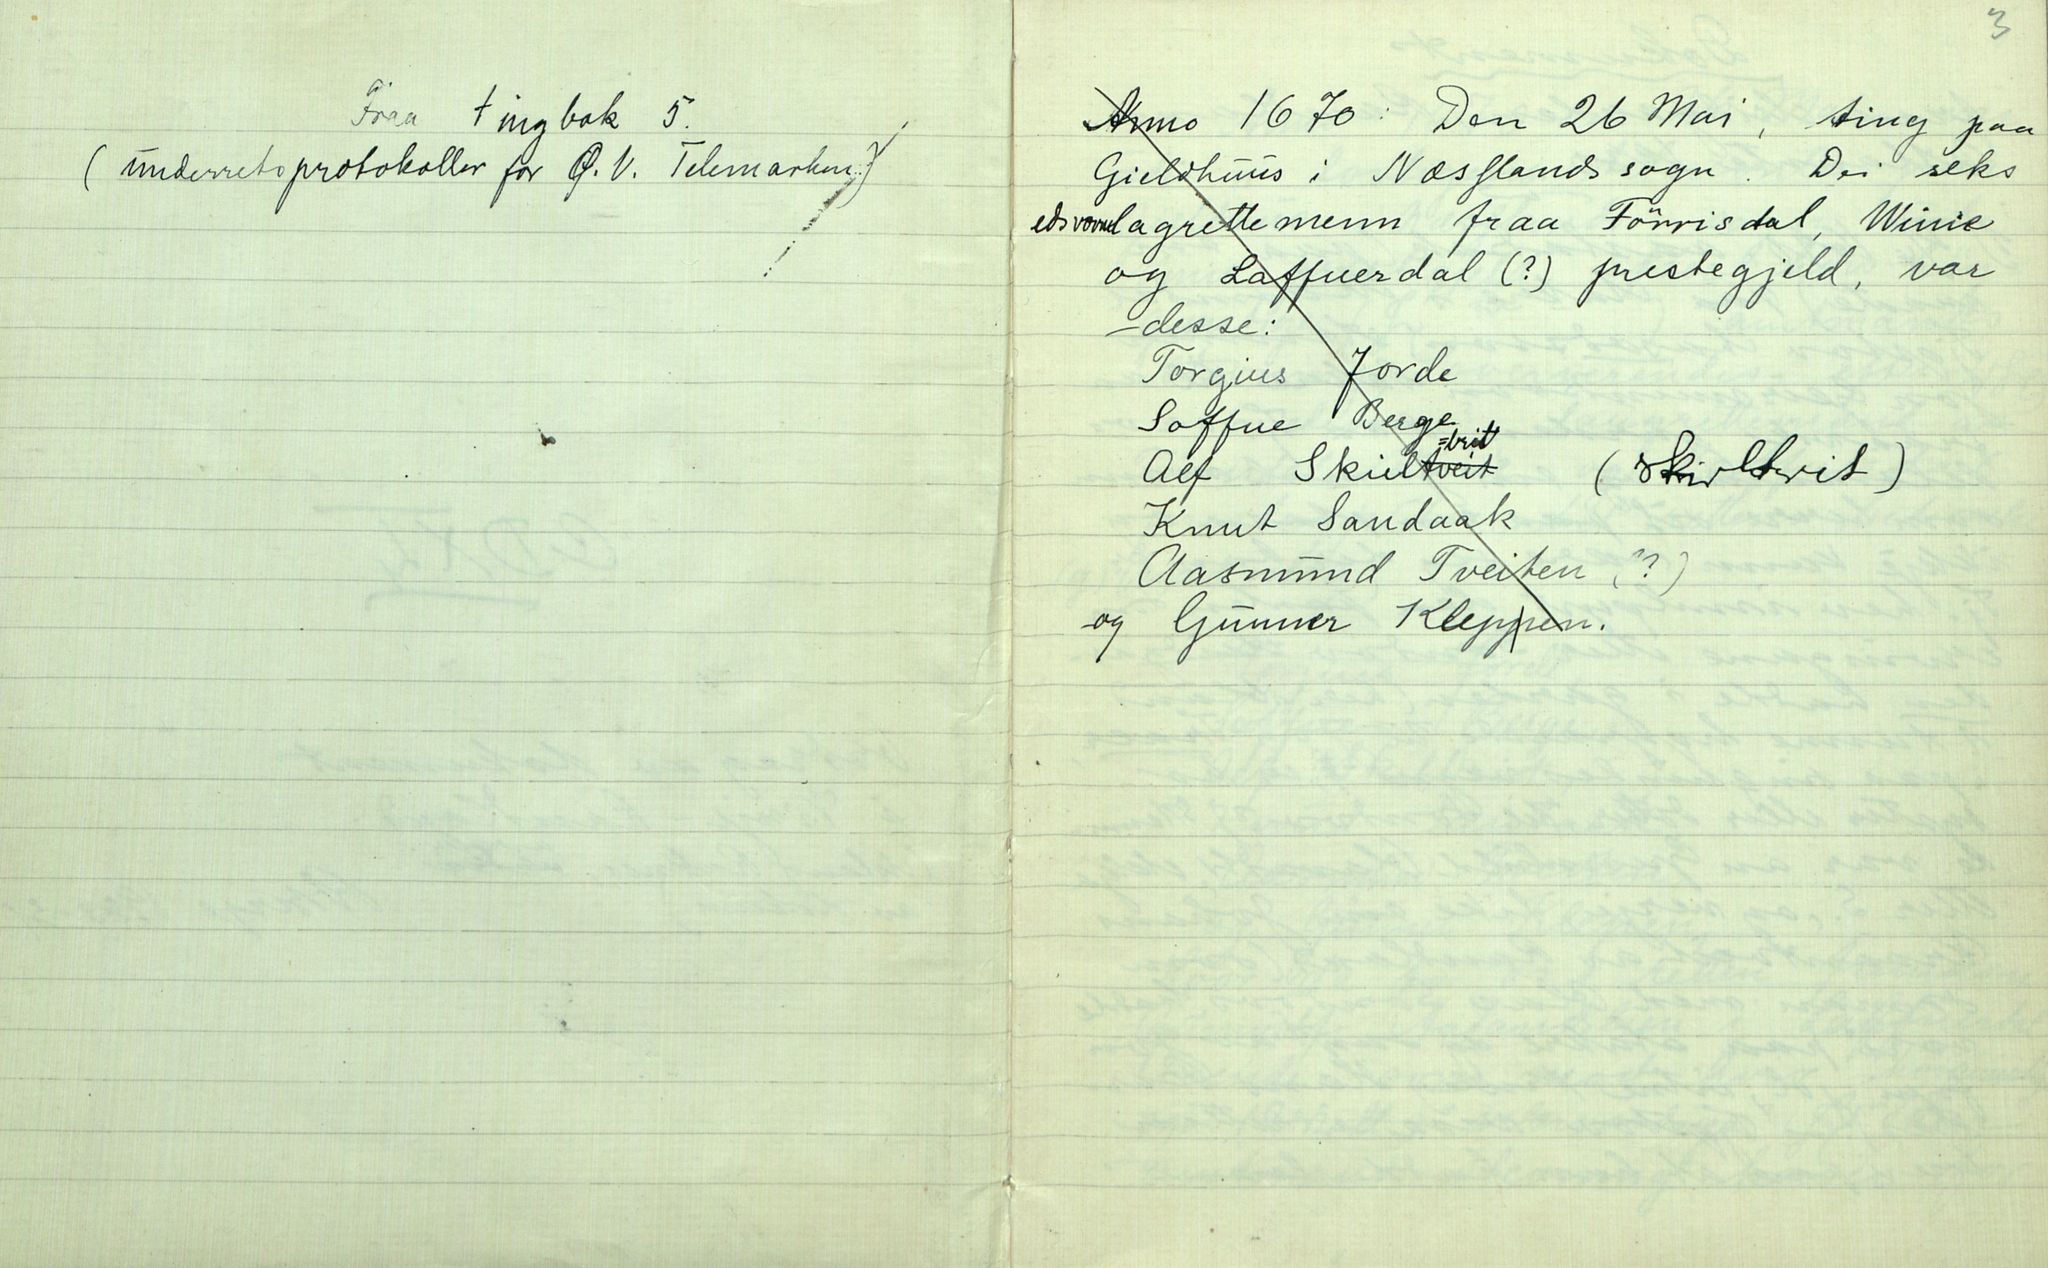 Fraa tingbok 5.
(underretsprotokoller for Ø. V. Telemarken)
3
Anno 1670: Den 26 Mai, ting paa
Gieldhuus i Næsflands sogn. Dei seks
edsvorne lagrettemenn fraa Förrisdal, Winie
og Laffuerdal (?) prestegjeld, var
desse:
Torgius Jorde
Soffue Berge
=brit
Alf Skieltveit (Skirltvit)
Knut Sandaak
Aasmund Tveiten (?)
og Gunner Kleppen.